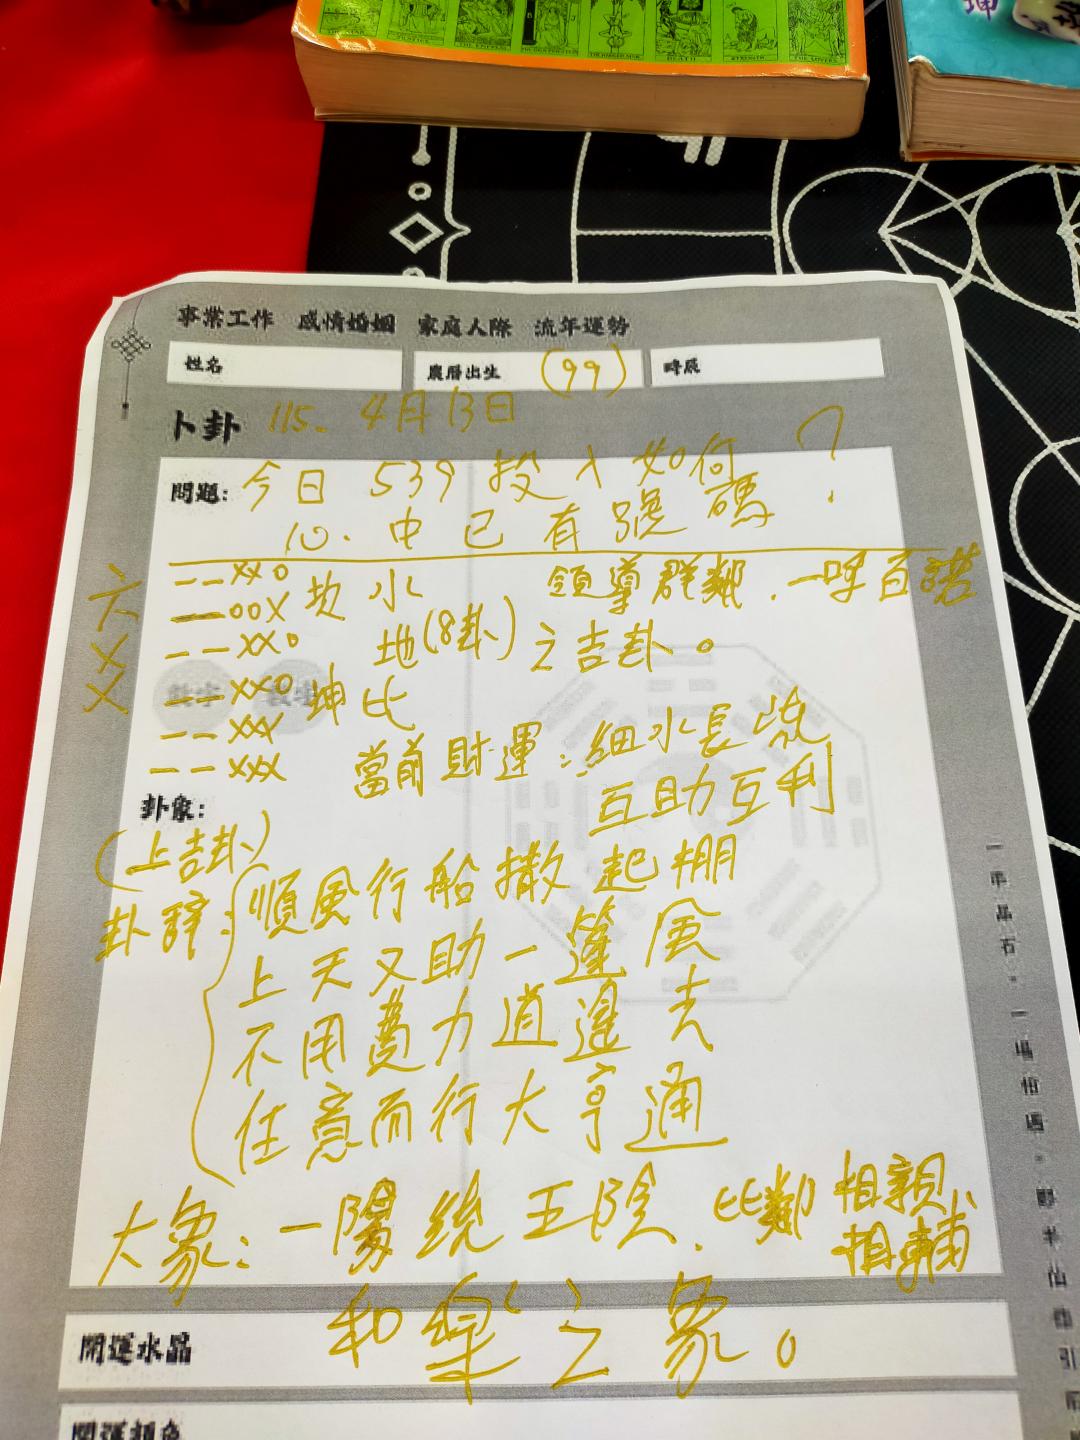 坤
STRENGTH
DEATH
THE LOVERS
事業工作 感情婚姻 家庭人際 流年運勢
姓名
農曆出生 (99)
時辰
卜卦 115. 4月13日
問題: 今日 539 投入如何 ?
10. 中已有號碼
六爻
— — XX0 坎水 領導群鄰.一呼百諾
— 00X
— — XX0 地(8卦)之吉卦。
— — XX0 坤比
— — XXX
— — XXX 當前財運:細水長流
互助互利
卦象:
(上吉卦)
卦辭: 順風行船撒起棚
上天又助一篷風
不用費力逍遙去
任意而行大亨通
大象: 一陽統五陰.比鄰相親相輔
和樂( )之象。
開運水晶
開運顏色